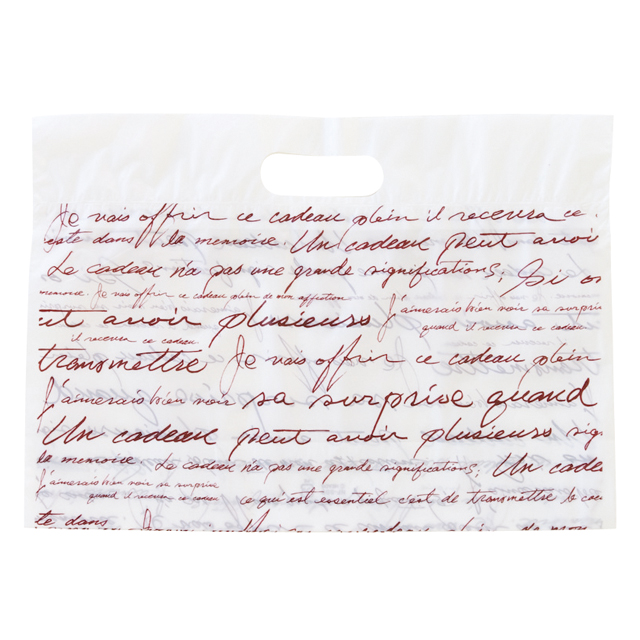 Je vais offrir ce cadeau plein il recevra ce
este dans la memoire. Un cadeau peut avoi
Le cadeau n'a pas une grande significations; Si on
memoire. Je vais offrir ce cadeau plein de mon affection
ut avoir plusieurs j'aimerais bien voir sa surpris
il recevra ce cadeau quand il recevra ce cadeau
transmettre Je vais offrir ce cadeau plein
j'aimerais bien voir sa surprise quand
Un cadeau peut avoir plusieurs sig
la memoire. Le cadeau n'a pas une grande significations; Un cade
j'aimerais bien voir sa surprise
quand il recevra ce cadeau ce qui est essentiel c'est de transmettre le coeu
te dans Je vais offrir ce cadeau plein de mon